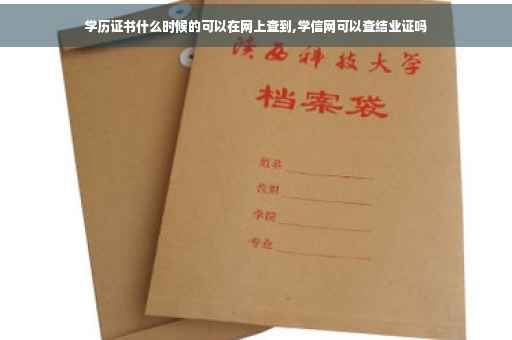 学历证书什么时候的可以在网上查到,学信网可以查结业证吗
陕西科技大学
档案袋
姓名
学院
专业